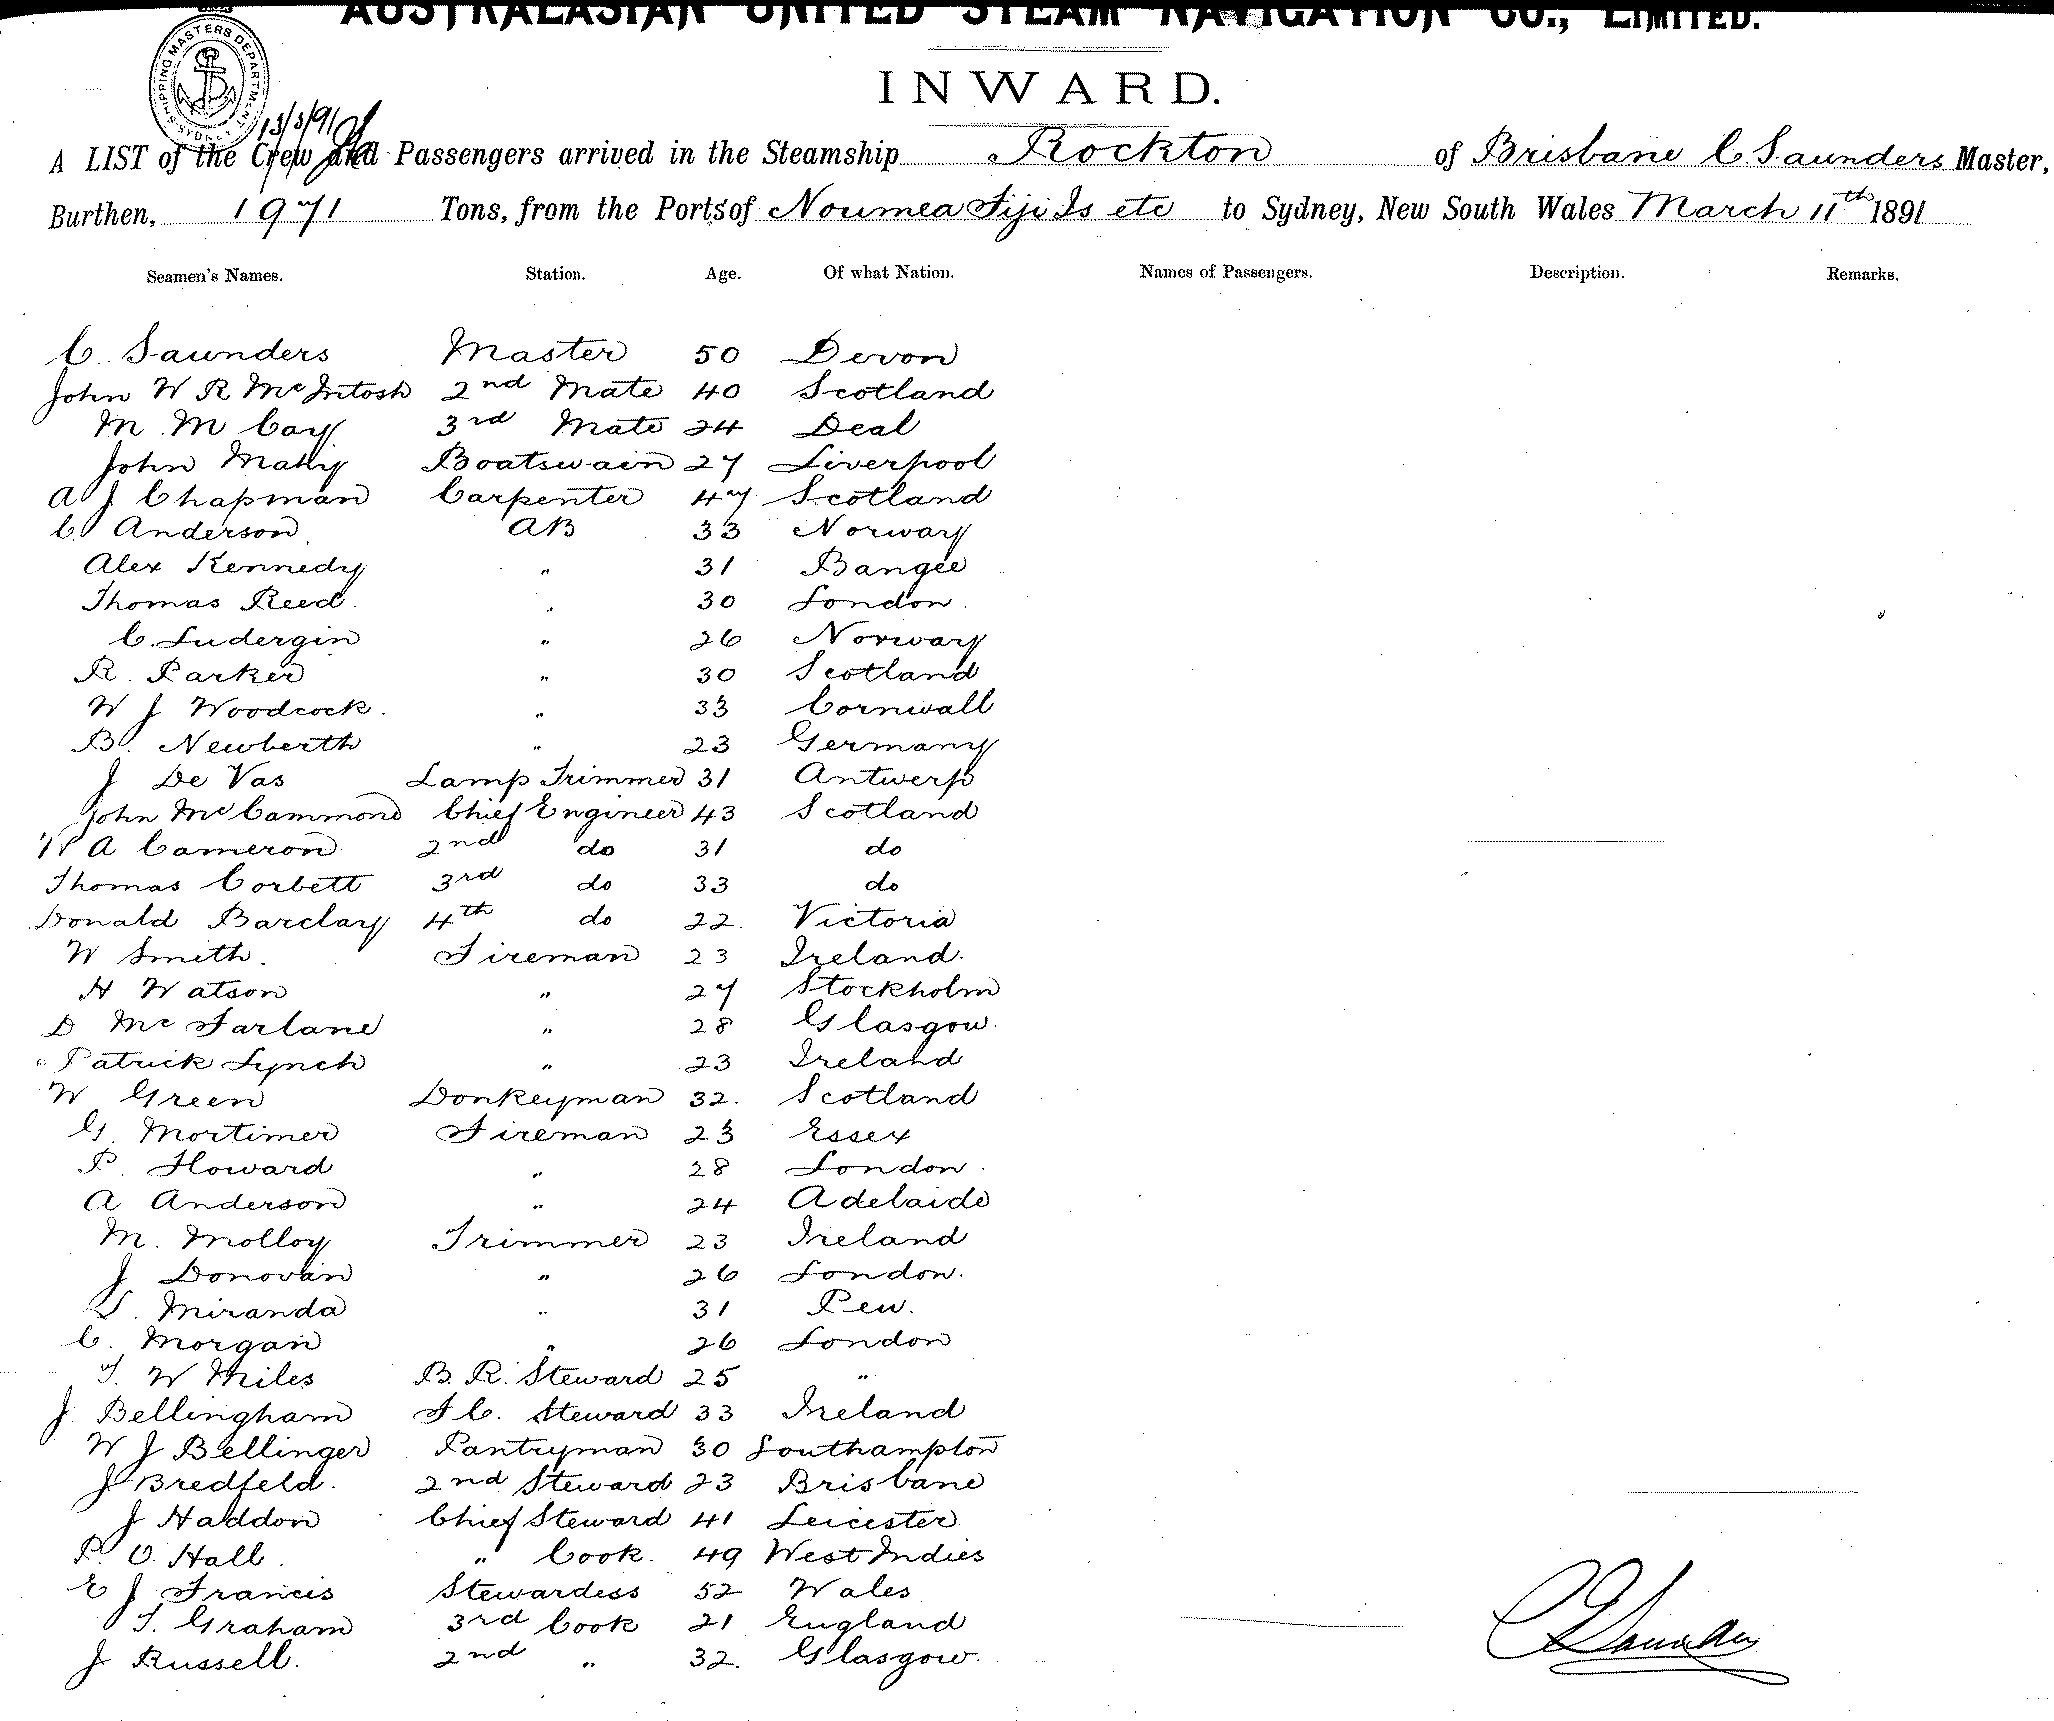 AUSTRALASIAN UNITED STEAM NAVIGATION CO., LIMITED.
INWARD.
SHIPPING MASTERS DEPARTMENT SYDNEY
13/3/91
A LIST of the Crew and Passengers arrived in the Steamship Rockton of Brisbane C Saunders Master,
Burthen, 1971 Tons, from the Ports of Noumea Fiji Is etc to Sydney, New South Wales March 11th 1891
Seamen's Names. Station. Age. Of what Nation. Names of Passengers. Description. Remarks.
C. Saunders Master 50 Devon
John W R McIntosh 2nd Mate 40 Scotland
M M Cay 3rd Mate 24 Deal
John Mahy Boatswain 27 Liverpool
A J Chapman Carpenter 47 Scotland
C. Anderson AB 33 Norway
Alex Kennedy " 31 Bangee
Thomas Reed. " 30 London.
C. Ludergin " 26 Norway
R. Parker " 30 Scotland
W J Woodcock. " 33 Cornwall
B. Newberth " 23 Germany
J De Vas Lamp Trimmer 31 Antwerp
John McCammond Chief Engineer 43 Scotland
W A Cameron 2nd do 31 do
Thomas Corbett 3rd do 33 do
Donald Barclay 4th do 22. Victoria
W Smith. Fireman 23 Ireland.
H Watson " 27 Stockholm
D McFarlane " 28 Glasgow.
Patrick Lynch " 23 Ireland
W Green Donkeyman 32. Scotland
G. Mortimer Fireman 23 Essex
P. Howard " 28 London.
A Anderson " 24 Adelaide
M. Molloy Trimmer 23 Ireland
J Donovan " 26 London.
S. Miranda " 31 Peu.
C. Morgan " 26 London
T. W Miles B. R. Steward 25 "
J Bellingham F C. Steward 33 Ireland
W J Bellinger Pantryman 30 Southampton
J Bredfeld. 2nd Steward 23 Brisbane
J Haddon Chief Steward 41 Leicester
P. O. Hall. " Cook. 49 West Indies
E J Francis Stewardess 52 Wales
T. Graham 3rd Cook 21 England
J Russell. 2nd " 32. Glasgow.
C Saunders